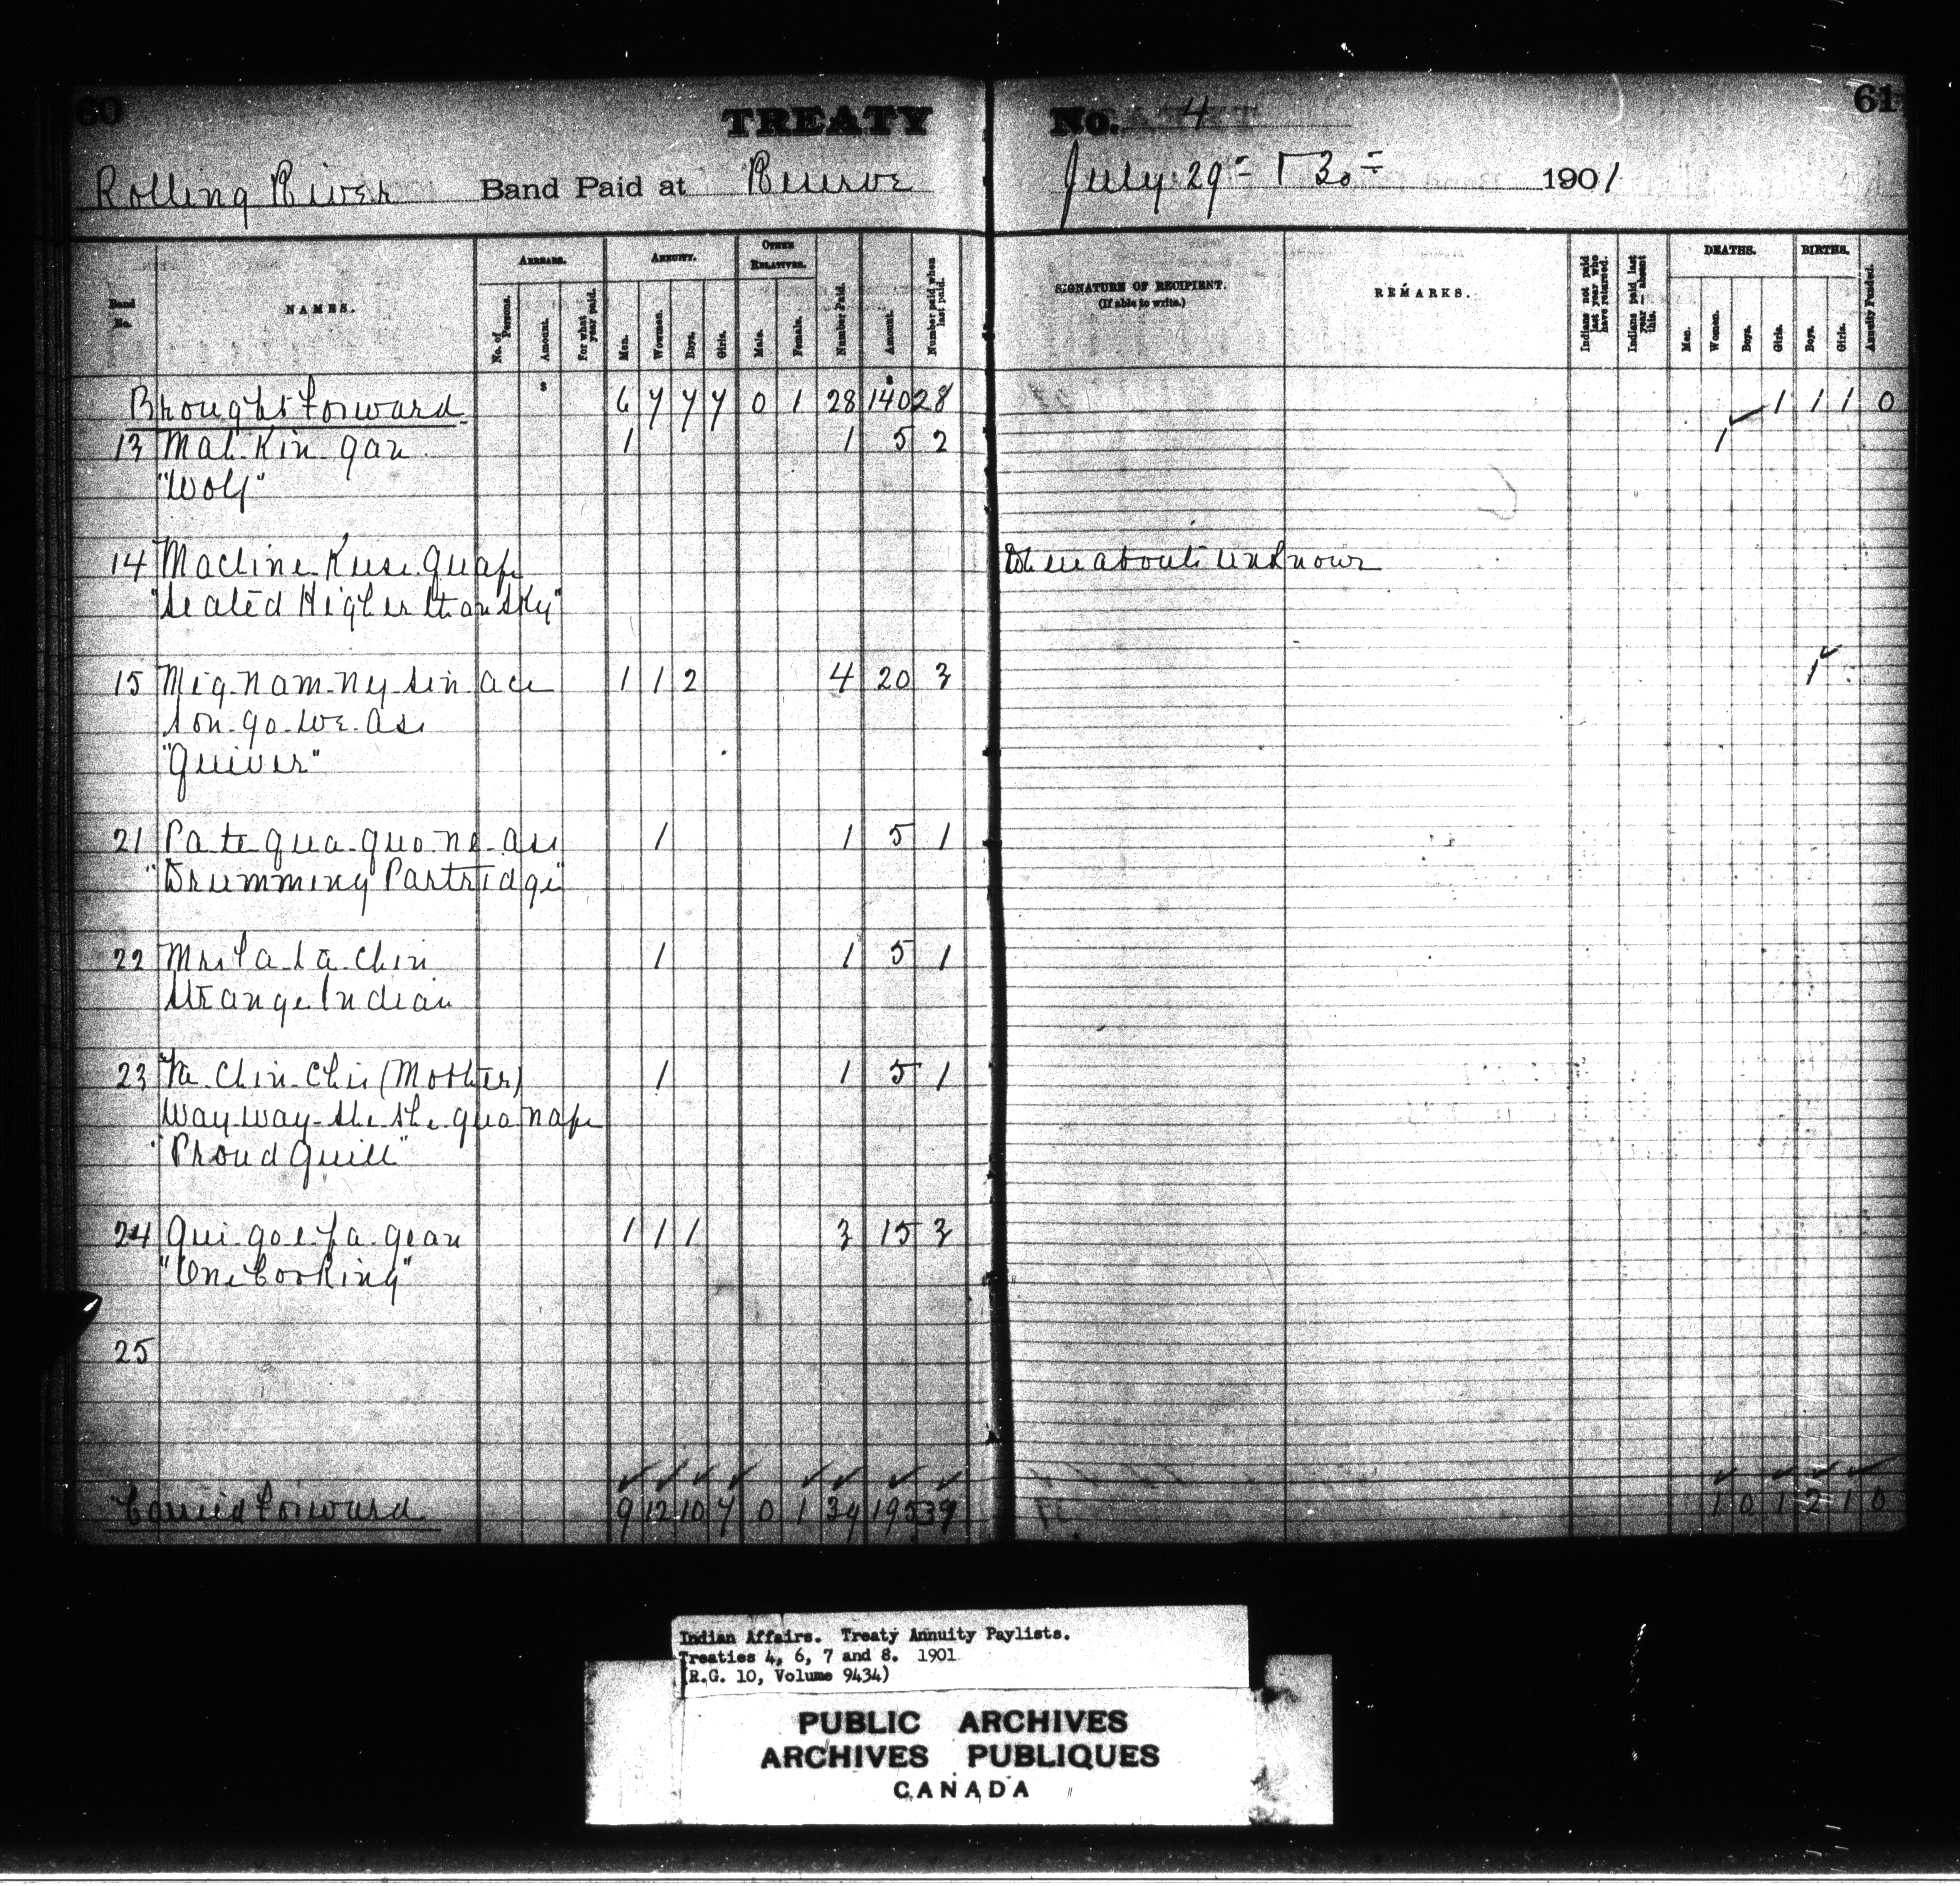 60 TREATY No. 4 61
Rolling River Band Paid at Reserve July 29 & 30 1901
Band No. NAMES. ARREARS. No. of Persons. Amount. For what year paid. ANNUITY. Men. Women. Boys. Girls. OTHER RELATIVES. Male. Female. Number Paid. Amount. Number paid when last paid. SIGNATURE OF RECIPIENT. (If able to write.) REMARKS. Indians not paid last year who have returned. Indians paid last year — absent this. DEATHS. Men. Women. Boys. Girls. BIRTHS. Boys. Girls. Annuity Funded.
Brought forward 6 7 7 7 0 1 28 $140 28 1 1 1 0
13 Mah-Kin-gan 1 1 5 2 1
"Wolf"
14 Whereabouts unknown
"Seated Higher than Sky"
15 Mig-nam-ny-sin ace 1 1 2 4 20 3 1
son-go-we-ass
"Quiver"
21 Pa-te-qua-quo-ne-ass 1 1 5 1
"Drumming Partridge"
22 1 1 5 1
Strange Indian
23 Ka-Chin-Chis (Mother) 1 1 5 1
Way-way-she-she-qua nape
"Proud Quill"
24 1 1 1 3 15 3
"One Cooking"
25
Carried forward 9 12 10 7 0 1 39 195 39 1 0 1 2 1 0
Indian Affairs. Treaty Annuity Paylists.
Treaties 4, 6, 7 and 8. 1901
(R.G. 10, Volume 9434)
PUBLIC ARCHIVES
ARCHIVES PUBLIQUES
CANADA